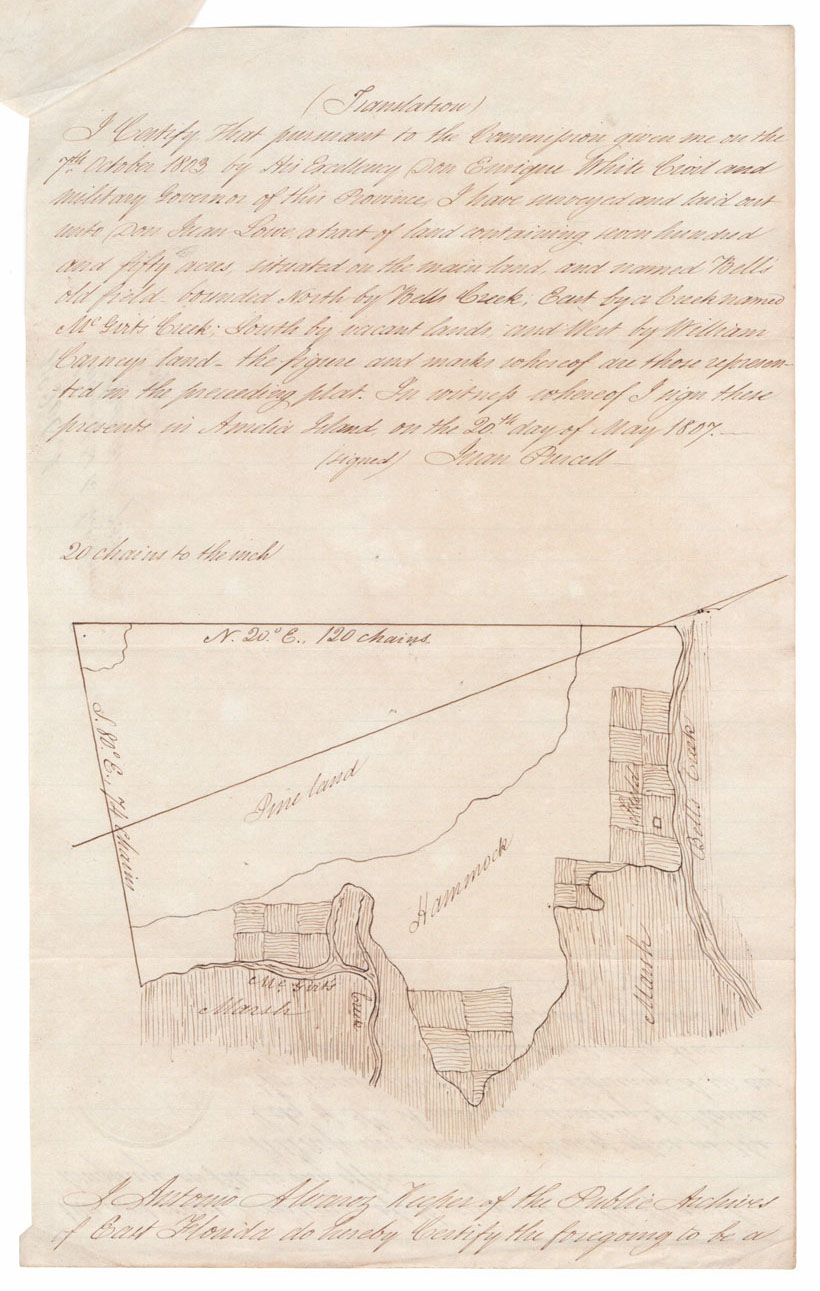 (Translation)
I Certify that pursuant to the Commission given me on the
7th October 1803 by His Excellency Don Enrique White Civil and
military Governor of this Province, I have surveyed and laid out
unto Don Juan Lowe, a tract of land containing seven hundred
and fifty acres, situated on the main land, and named Bells
old field. bounded North by Bells Creek; East by a Creek named
McGirts Creek; South by vacant lands, and West by William
Carneys land - the figure and marks whereof are those represen-
ted in the preceding plat. In witness whereof I sign these
presents in Amelia Island, on the 20th day of May 1807.
(signed) Juan Purcell
20 chains to the inch
N. 20.° E., 120 chains.
S. 80° E., 74 chains
Pine land
Hammock
Field
Bells Creek
Marsh
McGirts
Creek
Marsh
I Antonio Alvarez Keeper of the Public Archives
of East Florida do hereby Certify the foregoing to be a